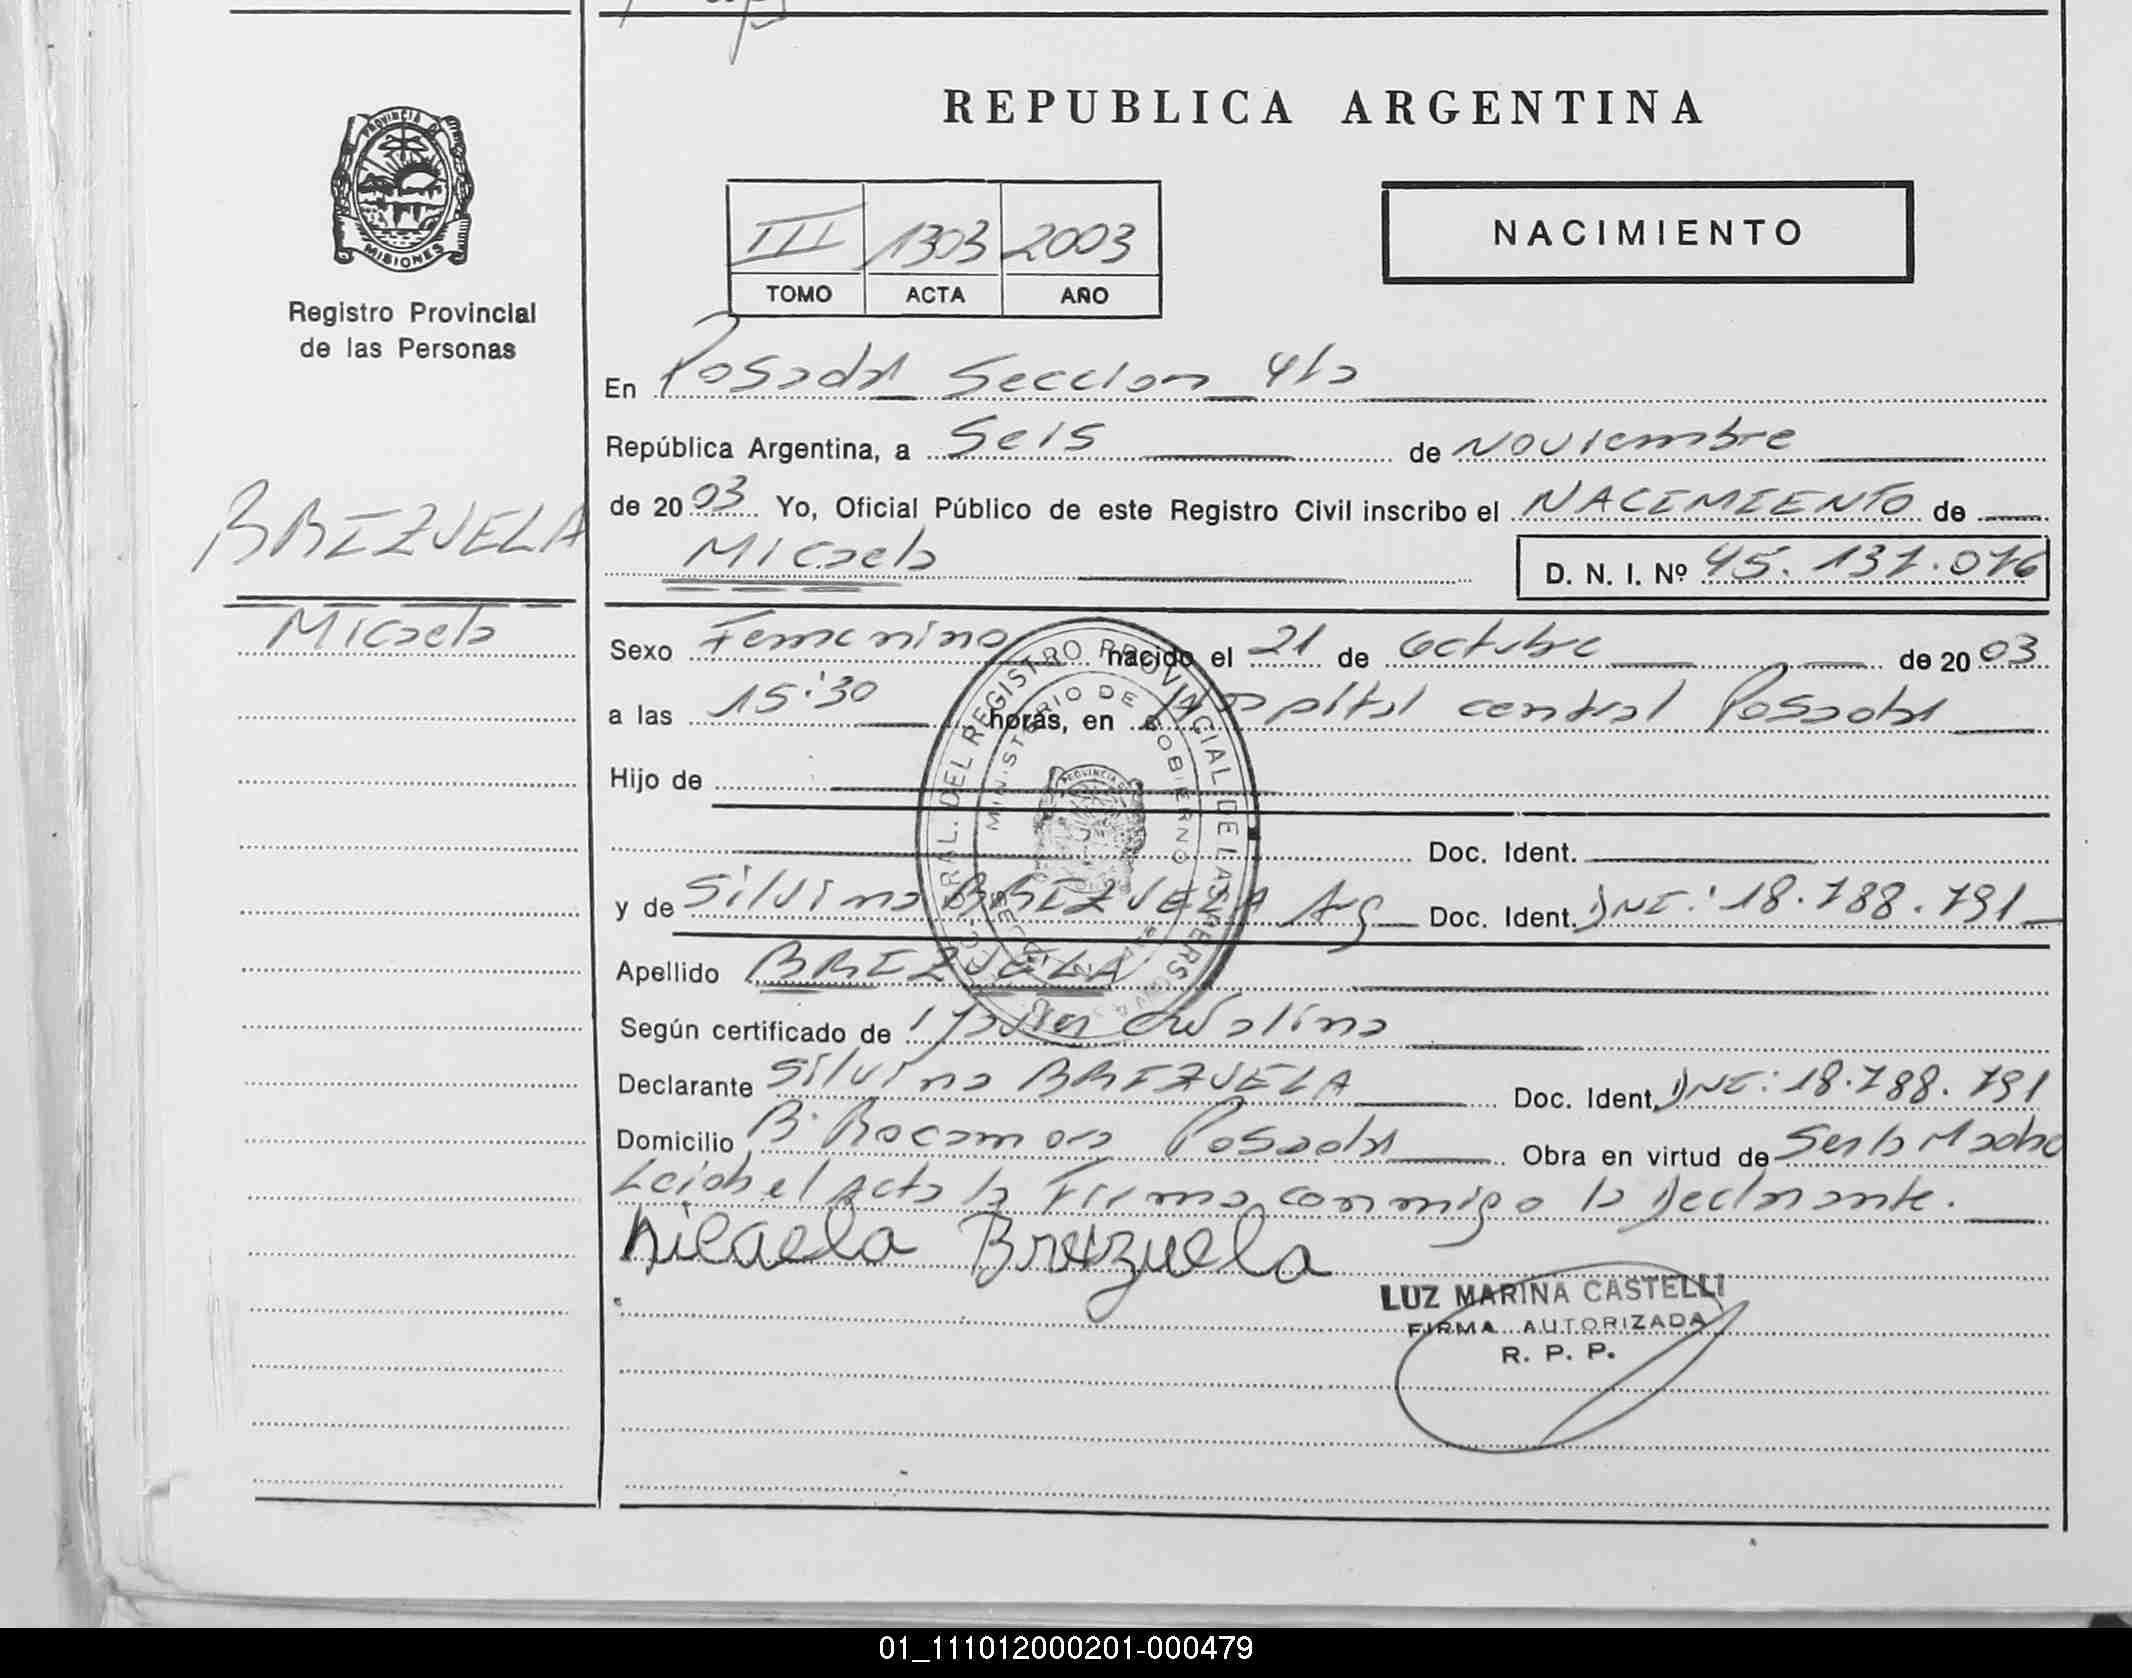 REPUBLICA ARGENTINA
PROVINCIA DE
MISIONES
Registro Provincial
de las Personas
III 1303 2003
TOMO ACTA AÑO
NACIMIENTO
En Posadas Seccion 4ta
República Argentina, a Seis de Noviembre
de 2003 Yo, Oficial Público de este Registro Civil inscribo el NACIMIENTO de
Micaela D. N. I. Nº 45.137.076
BRIZUELA
Micaela
Sexo Femenino nacido el 21 de Octubre de 2003
a las 15:30 horas, en Hospital central Posadas
Hijo de
Doc. Ident.
y de Silvina BRIZUELA Arg Doc. Ident. DNI: 18.788.791
Apellido BRIZUELA
Según certificado de
Declarante Silvina BRIZUELA Doc. Ident. DNI: 18.788.791
Domicilio Bº Rocamora Posadas Obra en virtud de Ser la Madre
Leida el Acta la Firma conmigo la Declarante.
Micaela Breizuela
LUZ MARINA CASTELLI
FIRMA AUTORIZADA
R. P. P.
DEL REGISTRO PROVINCIAL DE LAS PERSONAS
MINISTERIO DE GOBIERNO
01_111012000201-000479